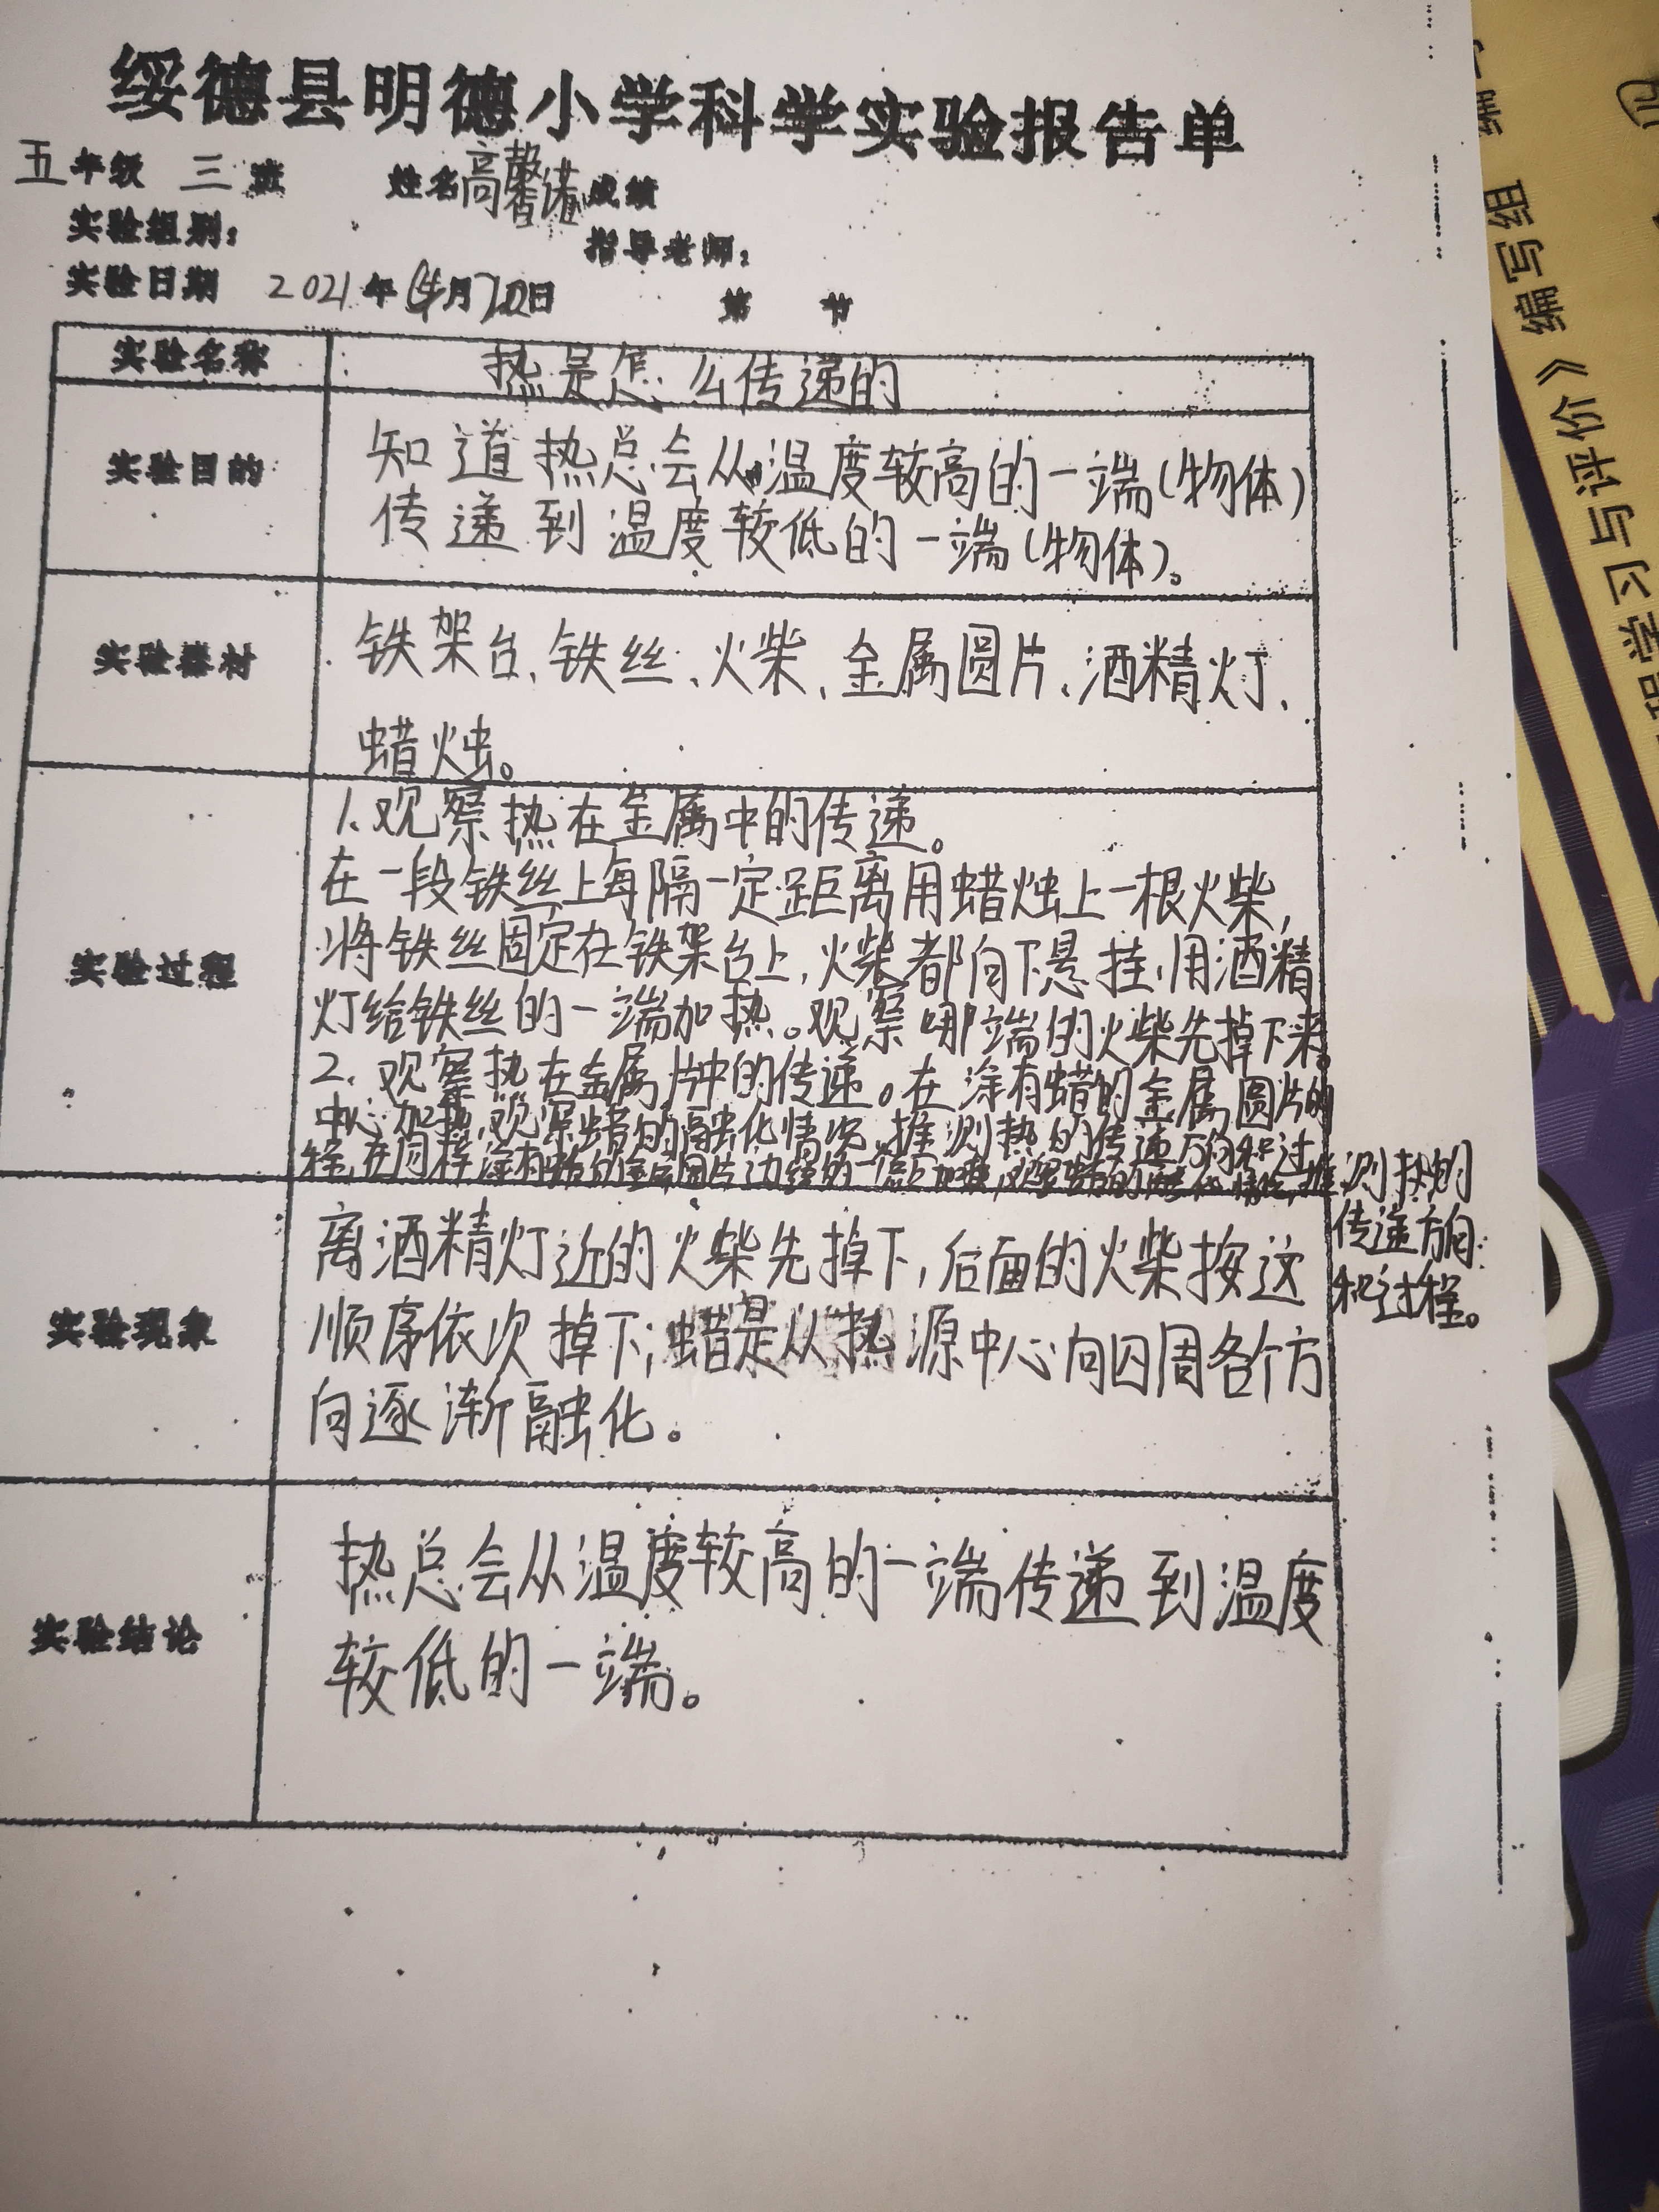 绥德县明德小学科学实验报告单
五年级 三 班 姓名高馨诺成绩
实验组别: 指导老师:
实验日期 2021年 月 日 第 节
实验名称 热是怎么传递的
实验目的
知道热总会从温度较高的一端(物体)
传递到温度较低的一端(物体)。
实验器材
铁架台、铁丝、火柴、金属圆片、酒精灯、
蜡烛。
实验过程
1.观察热在金属中的传递。
在一段铁丝上每隔一定距离用蜡烛上一根火柴,
将铁丝固定在铁架台上,火柴都向下悬挂,用酒精
灯给铁丝的一端加热。观察哪端的火柴先掉下来。
2.观察热在金属片中的传递。在涂有蜡的金属圆片的
中心加热,观察蜡的融化情况,推测热的传递方向和过
程,在同样涂有蜡的金属圆片边缘的一点加热,观察蜡的融化情况,推测热的
传递方向
和过程。
实验现象
离酒精灯近的火柴先掉下,后面的火柴按这
顺序依次掉下;蜡是从热源中心向四周各个方
向逐渐融化。
实验结论
热总会从温度较高的一端传递到温度
较低的一端。
学习与评价》编写组 编写